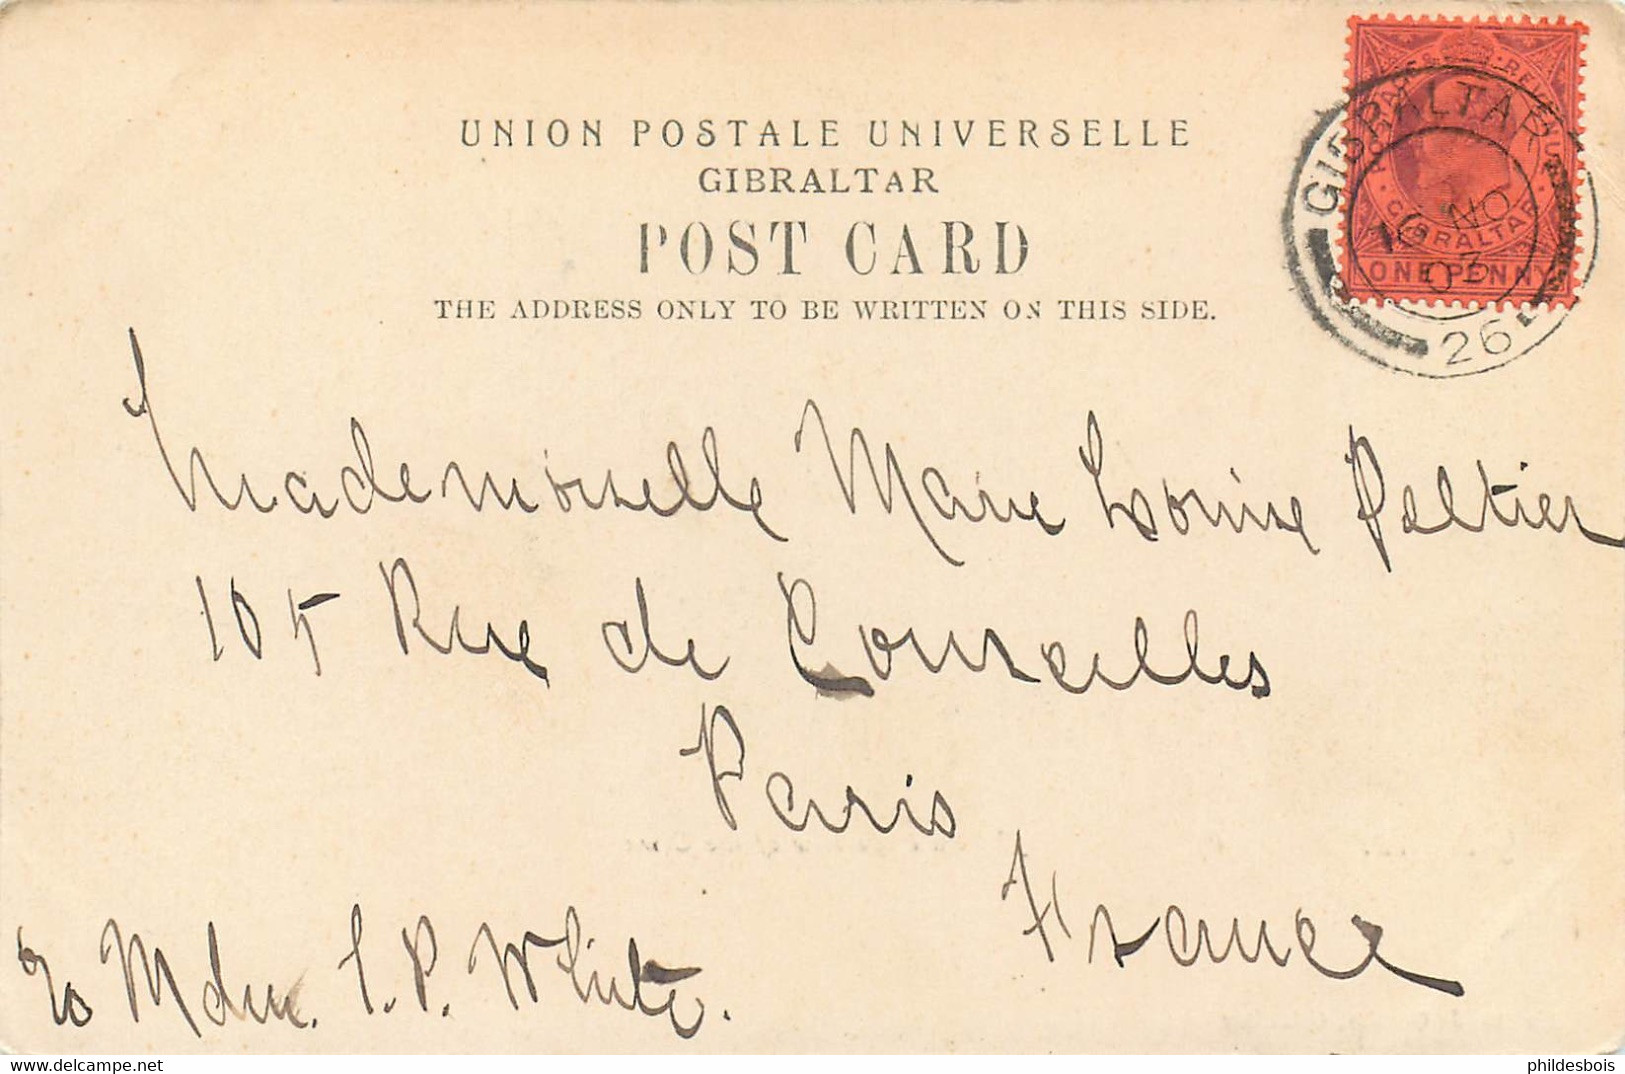 UNION POSTALE UNIVERSELLE
GIBRALTAR
POST CARD
THE ADDRESS ONLY TO BE WRITTEN ON THIS SIDE.
POSTAGE & REVENUE
GIBRALTAR
ONE PENNY
GIBRALTAR
16 NO
03
26
Mademoiselle Marie Louise Peltier
105 Rue de Courcelles
Paris
France
c/o Mdm. S. P. White.
delcampe.net
phildesbois